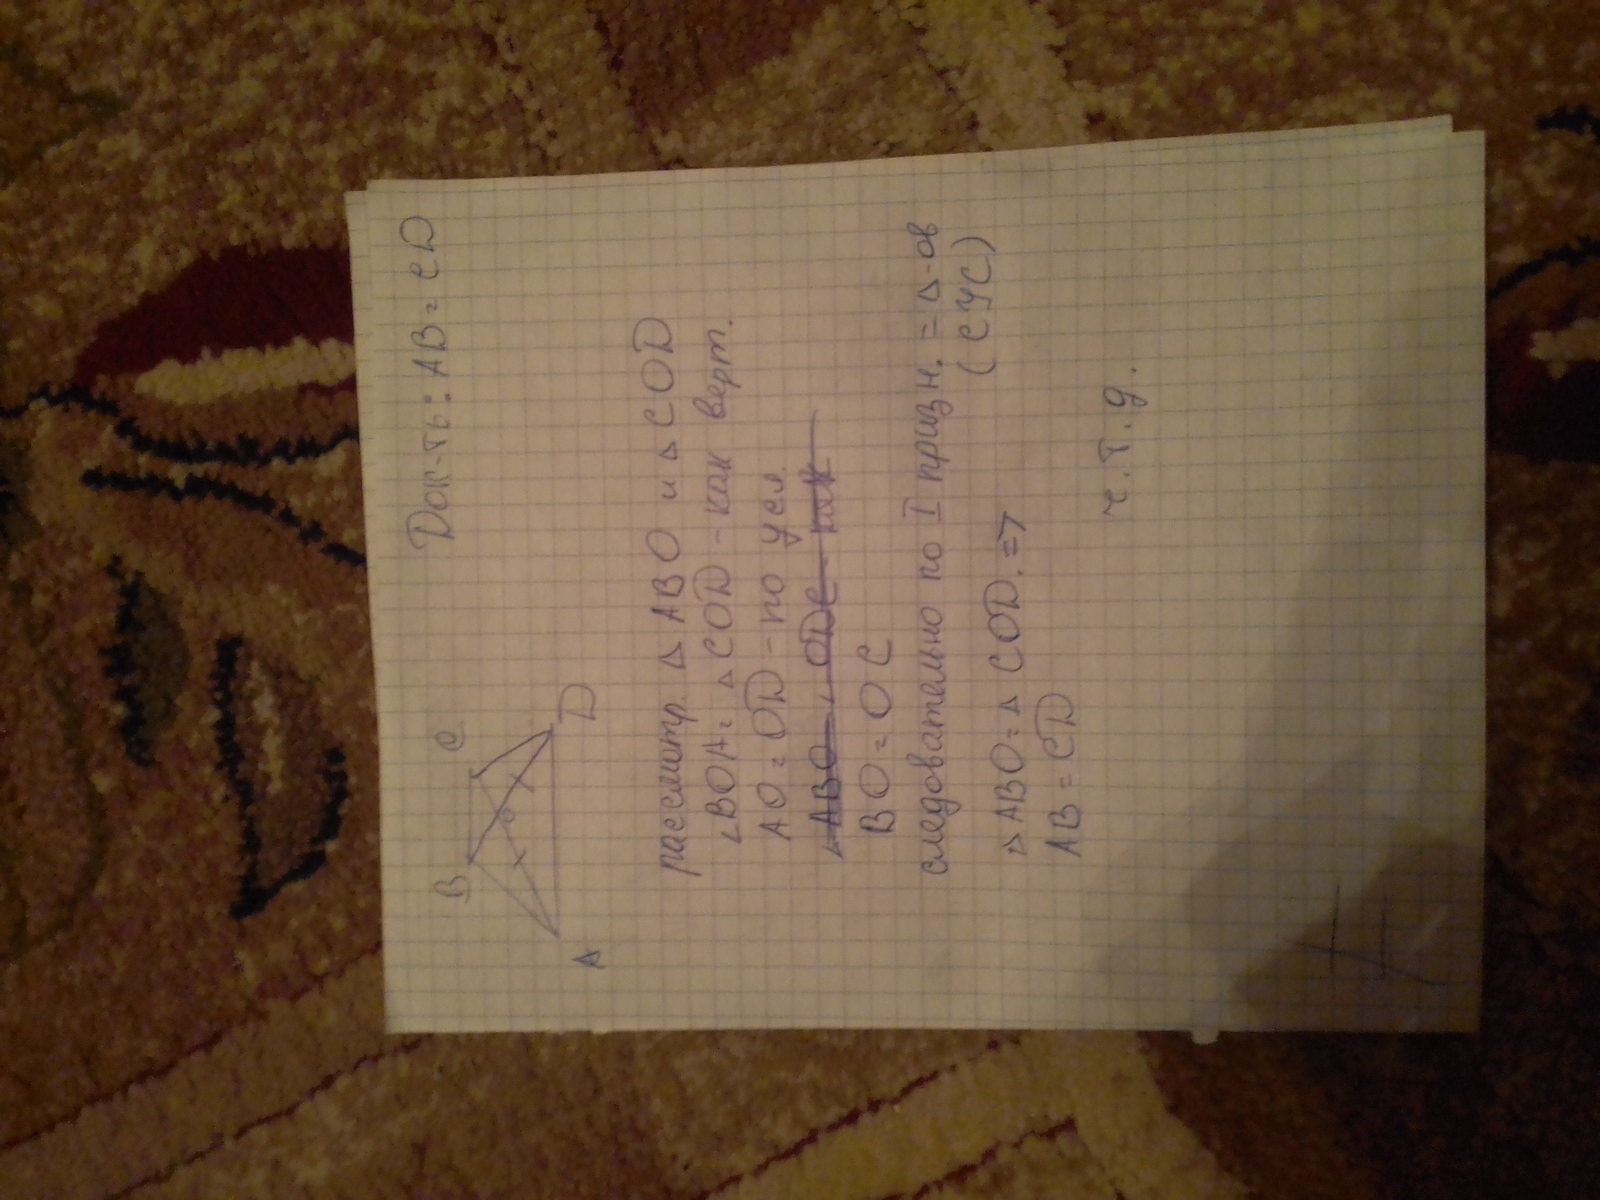 Док-ть: AB = CD
B C
O
A D
рассмотр. △ ABO и △ COD
∠BOA = △ COD - как верт.
AO = OD - по усл.
∠ ABO = ODC - как
BO = OC
следовательно по I призн. = △-ов
(СУС)
△ ABO = △ COD. =>
AB = CD
ч.т.д.